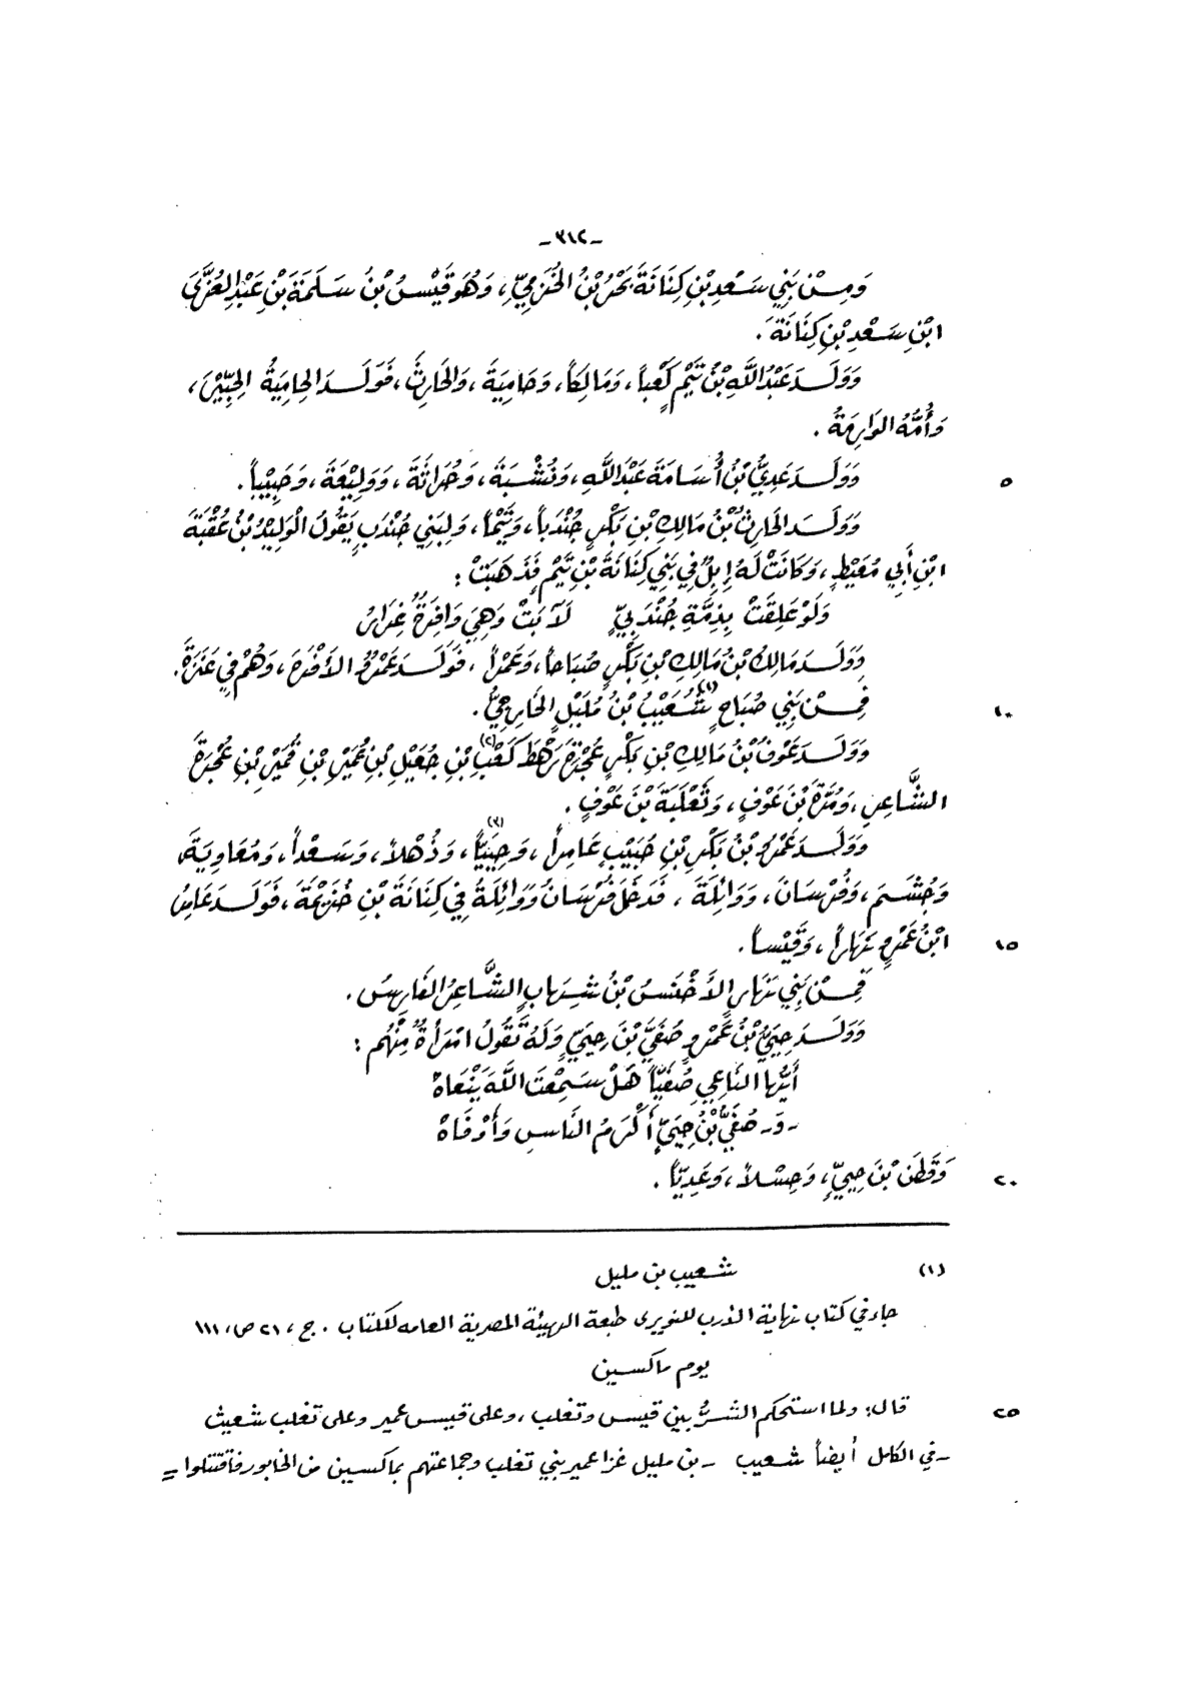 -٣١٢-
وَمِنْ بَنِي سَعْدِ بْنِ كِنَانَةَ بَحْرُ بْنُ الخَزَمِيِّ، وَهُوَ قَيْسُ بْنُ سَلَمَةَ بْنِ عَبْدِ العُزَّى
ابْنِ سَعْدِ بْنِ كِنَانَةَ.
وَوَلَدَ عَبْدُ اللَّهِ بْنُ تَيْمٍ كَعْباً، وَمَالِكاً، وَحَامِيَةَ، وَالحَارِثَ، فَوَلَدَ الحَامِيَةُ الحِبِّيْنَ،
وَأُمُّهُ الوَارِمَةُ.
وَوَلَدَ عَدِيُّ بْنُ أُسَامَةَ عَبْدَ اللَّهِ، وَنُشْبَةَ، وَحُرَاثَةَ، وَوَلِيْعَةَ، وَحَبِيْباً. ٥
وَوَلَدَ الحَارِثُ بْنُ مَالِكِ بْنِ بَكْرٍ جُنْدَباً، وَتَيْماً، وَلِبَنِي جُنْدَبٍ يَقُولُ الْوَلِيْدُ بْنُ عُقْبَةَ
ابْنِ أَبِي مُعَيْطٍ، وَكَانَتْ لَهُ إِبِلٌ فِي بَنِي كِنَانَةَ بْنِ تَيْمٍ فَذَهَبَتْ:
وَلَوْ عَلِقَتْ بِذِمَّةِ جُنْدَبِيٍّ لَآبَتْ وَهِيَ وَافِرَةٌ غِزَارُ
وَوَلَدَ مَالِكُ بْنُ مَالِكِ بْنِ بَكْرٍ صُبَاحاً، وَعَمْراً، فَوَلَدَ عَمْرٌو الأَفْرَحَ، وَهُمْ فِي عَنَزَةَ.
فَمِنْ بَنِي صُبَاحٍ شُعَيْبُ(١) بْنُ مُلَيْلٍ الخَارِجِيُّ. ١٠
وَوَلَدَ عَوْفُ بْنُ مَالِكِ بْنِ بَكْرٍ عُجْرَةَ رَهْطَ كَعْبِ(٢) بْنِ جُعَيْلِ بْنِ عُمَيْرِ بْنِ قُمَيْرِ بْنِ عُجْرَةَ
الشَّاعِرِ، وَمُرَّةَ بْنَ عَوْفٍ، وَثَعْلَبَةَ بْنَ عَوْفٍ.
وَوَلَدَ عَمْرُو بْنُ بَكْرِ بْنِ حُبَيْبٍ عَامِراً، وَحِيَيّاً(٣)، وَذُهْلاً، وَسَعْداً، وَمُعَاوِيَةَ،
وَجُشَمَ، وَفُرْسَانَ، وَوَائِلَةَ، فَدَخَلَ فُرْسَانُ وَوَائِلَةُ فِي كِنَانَةَ بْنِ خُزَيْمَةَ، فَوَلَدَ عَامِرُ
ابْنُ عَمْرٍو نَهَاراً، وَقَيْساً. ١٥
فَمِنْ بَنِي نَهَارٍ الأَخْنَسُ بْنُ شِهَابٍ الشَّاعِرُ الفَارِسُ.
وَوَلَدَ حِيَيُّ بْنُ عَمْرٍو صُفَيَّ بْنَ حِيَيٍّ وَلَهُ تَقُولُ امْرَأَةٌ مِنْهُم:
أَيُّهَا النَّاعِي صُفَيّاً هَلْ سَمِعْتَ اللَّهَ يَنْعَاهْ
-وَ- صُفَيُّ بْنُ حِيَيٍّ أَكْرَمُ النَّاسِ وَأَوْفَاهْ
وَقَطَنَ بْنَ حِيَيٍّ، وَحِسْلاً، وَعَدِيّاً. ٢٠
(١) شعيب بن مليل
جاء في كتاب نهاية الأرب للنويرى طبعة الهيئة المصرية العامه للكتاب. ج، ٢١ ص، ١١١
يوم ماكسين
قال: ولما استحكم الشرُّ بين قيس وتغلب، وعلى قيس عمير وعلى تغلب شعيث ٢٥
-في الكامل أيضاً شعيب- بن مليل غزا عمير بني تغلب وجماعتهم بماكسين من الخابور فاقتتلوا =